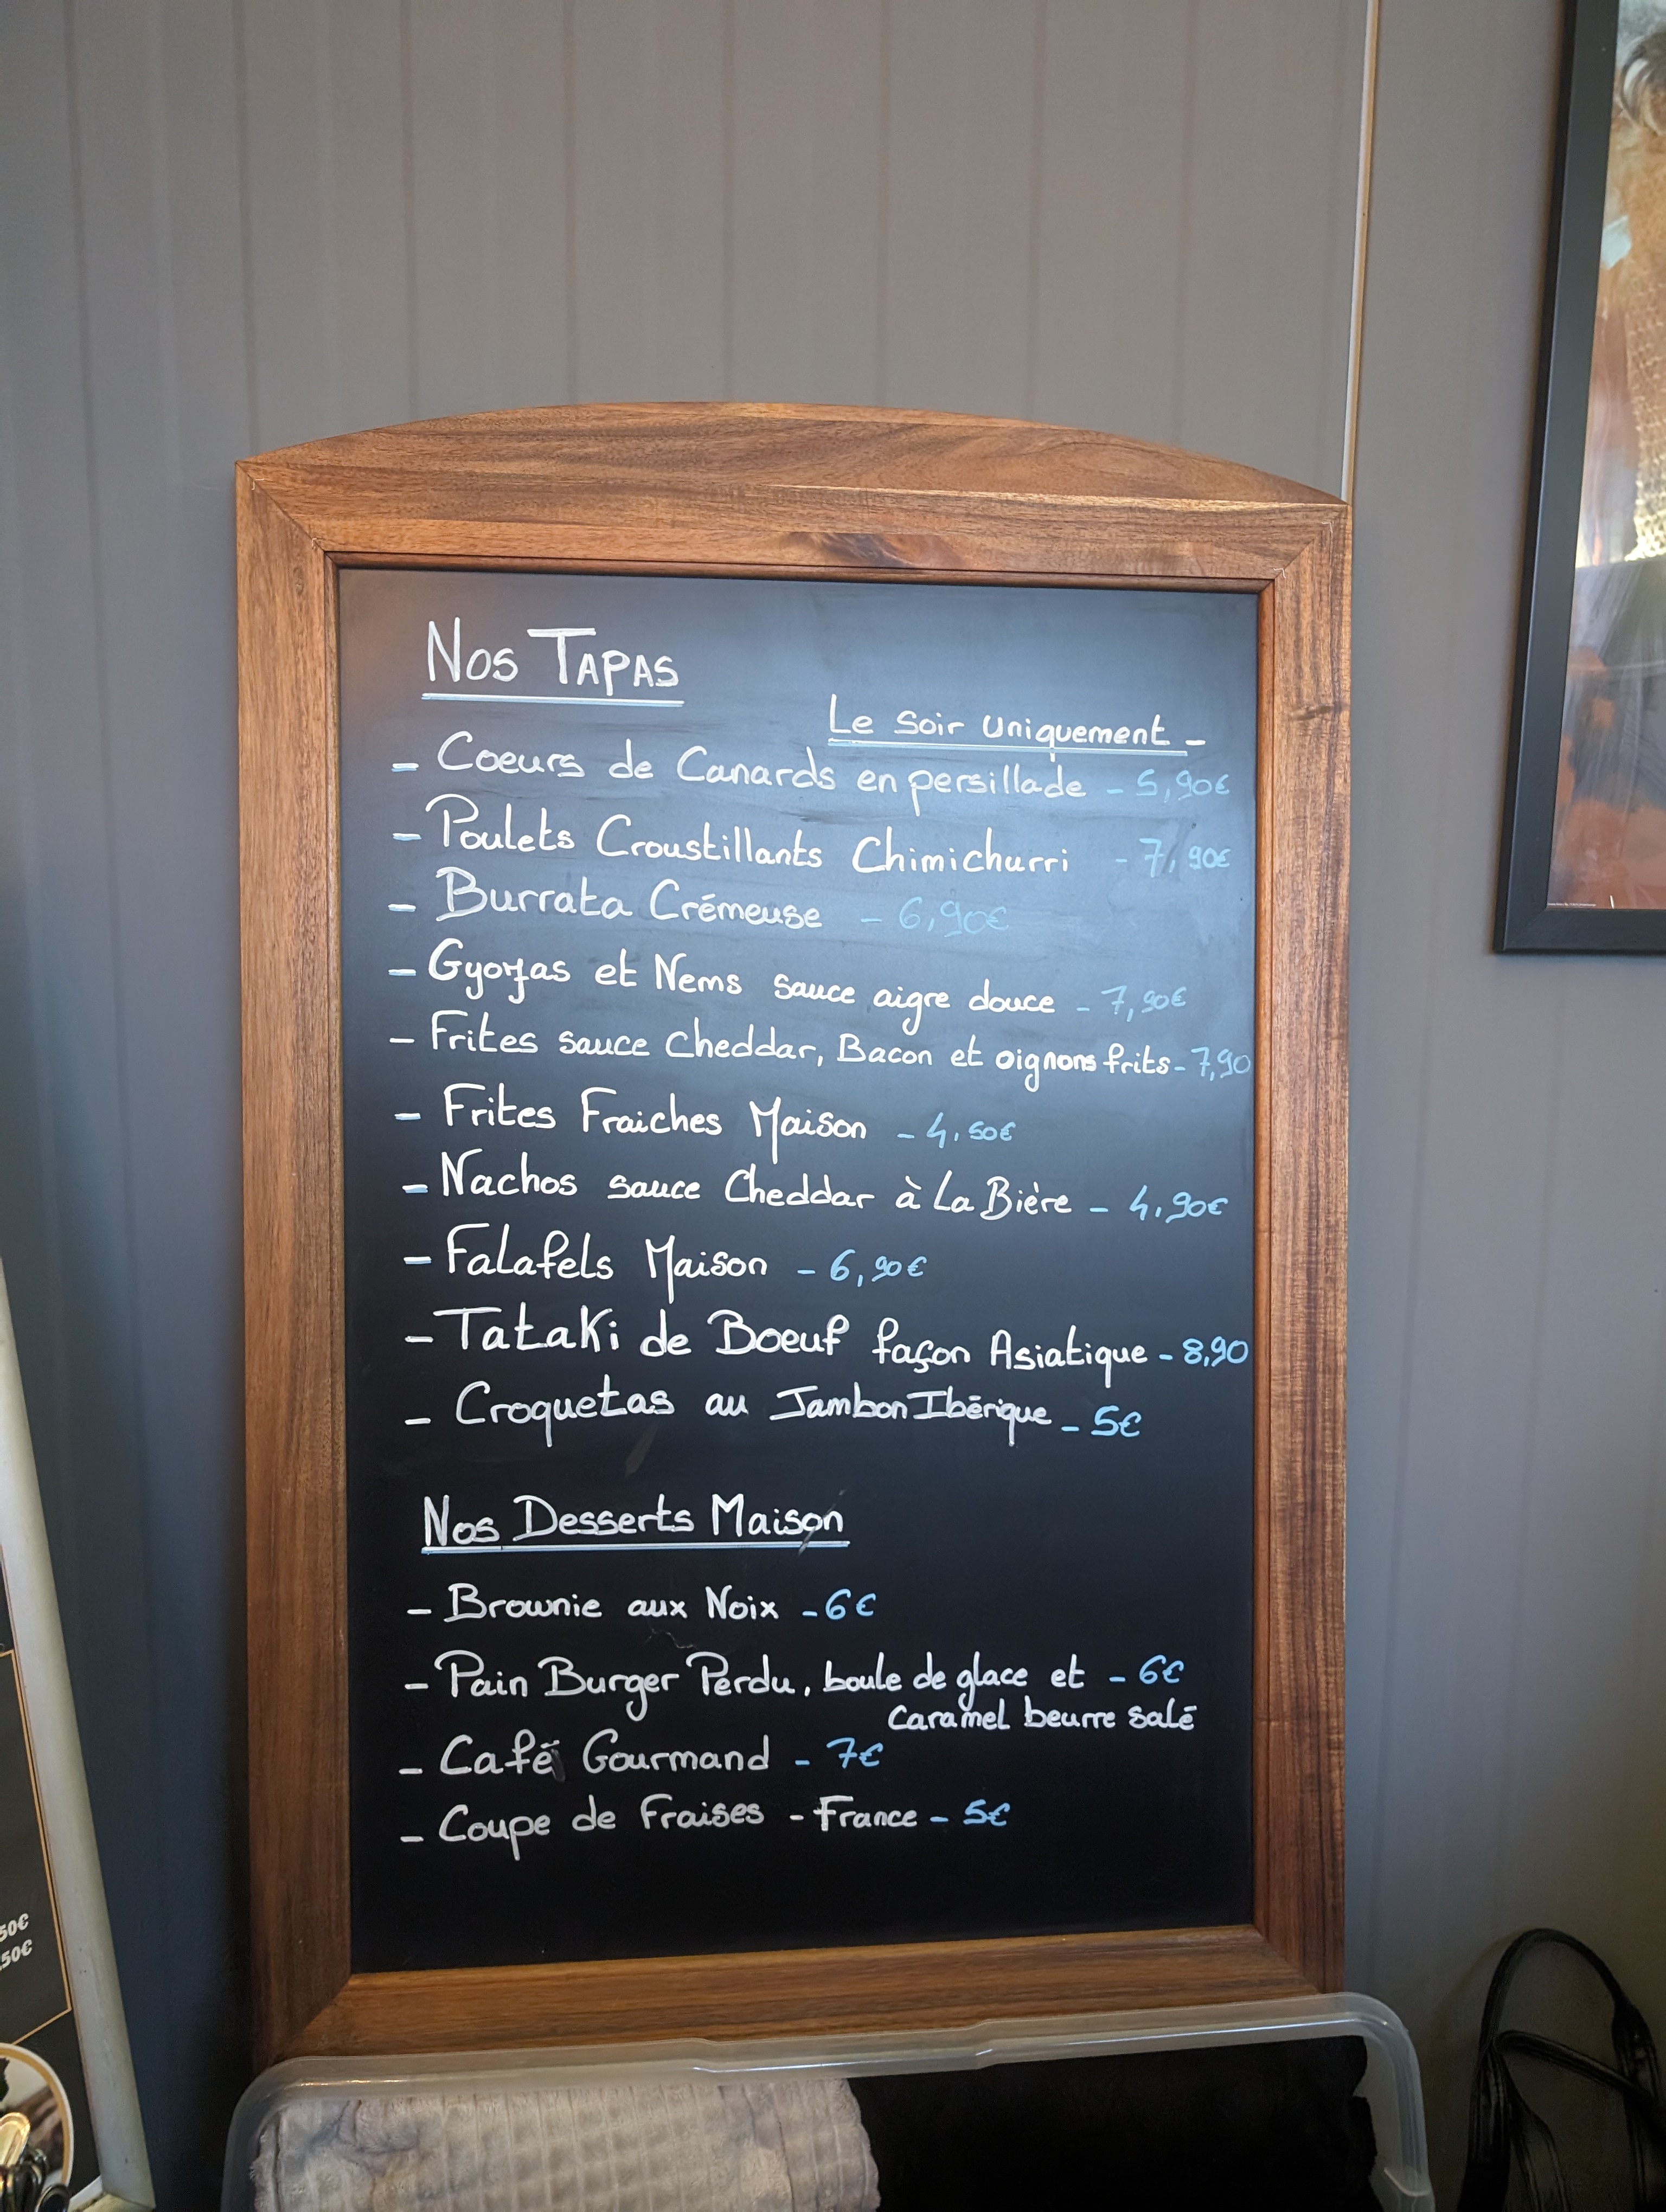 Nos Tapas
Le soir uniquement -
- Coeurs de Canards en persillade - 5,90€
- Poulets Croustillants Chimichurri - 7,90€
- Burrata Crémeuse - 6,90€
- Gyozas et Nems sauce aigre douce - 7,90€
- Frites sauce cheddar, Bacon et oignons frits - 7,90
- Frites Fraiches Maison - 4,50€
- Nachos sauce Cheddar à La Bière - 4,90€
- Falafels Maison - 6,90€
- Tataki de Boeuf façon Asiatique - 8,90
- Croquetas au Jambon Ibérique - 5€
Nos Desserts Maison
- Brownie aux Noix - 6€
- Pain Burger Perdu, boule de glace et - 6€
Caramel beurre salé
- Café Gourmand - 7€
- Coupe de Fraises - France - 5€
50€
,50€